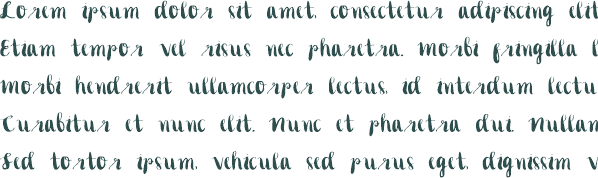 Lorem ipsum dolor sit amet, consectetur adipiscing elit
Etiam tempor vel risus nec pharetra. Morbi fringilla l
Morbi hendrerit ullamcorper lectus, id interdum lectu
Curabitur et nunc elit. Nunc et pharetra dui. Nullam
Sed tortor ipsum, vehicula sed purus eget, dignissim v